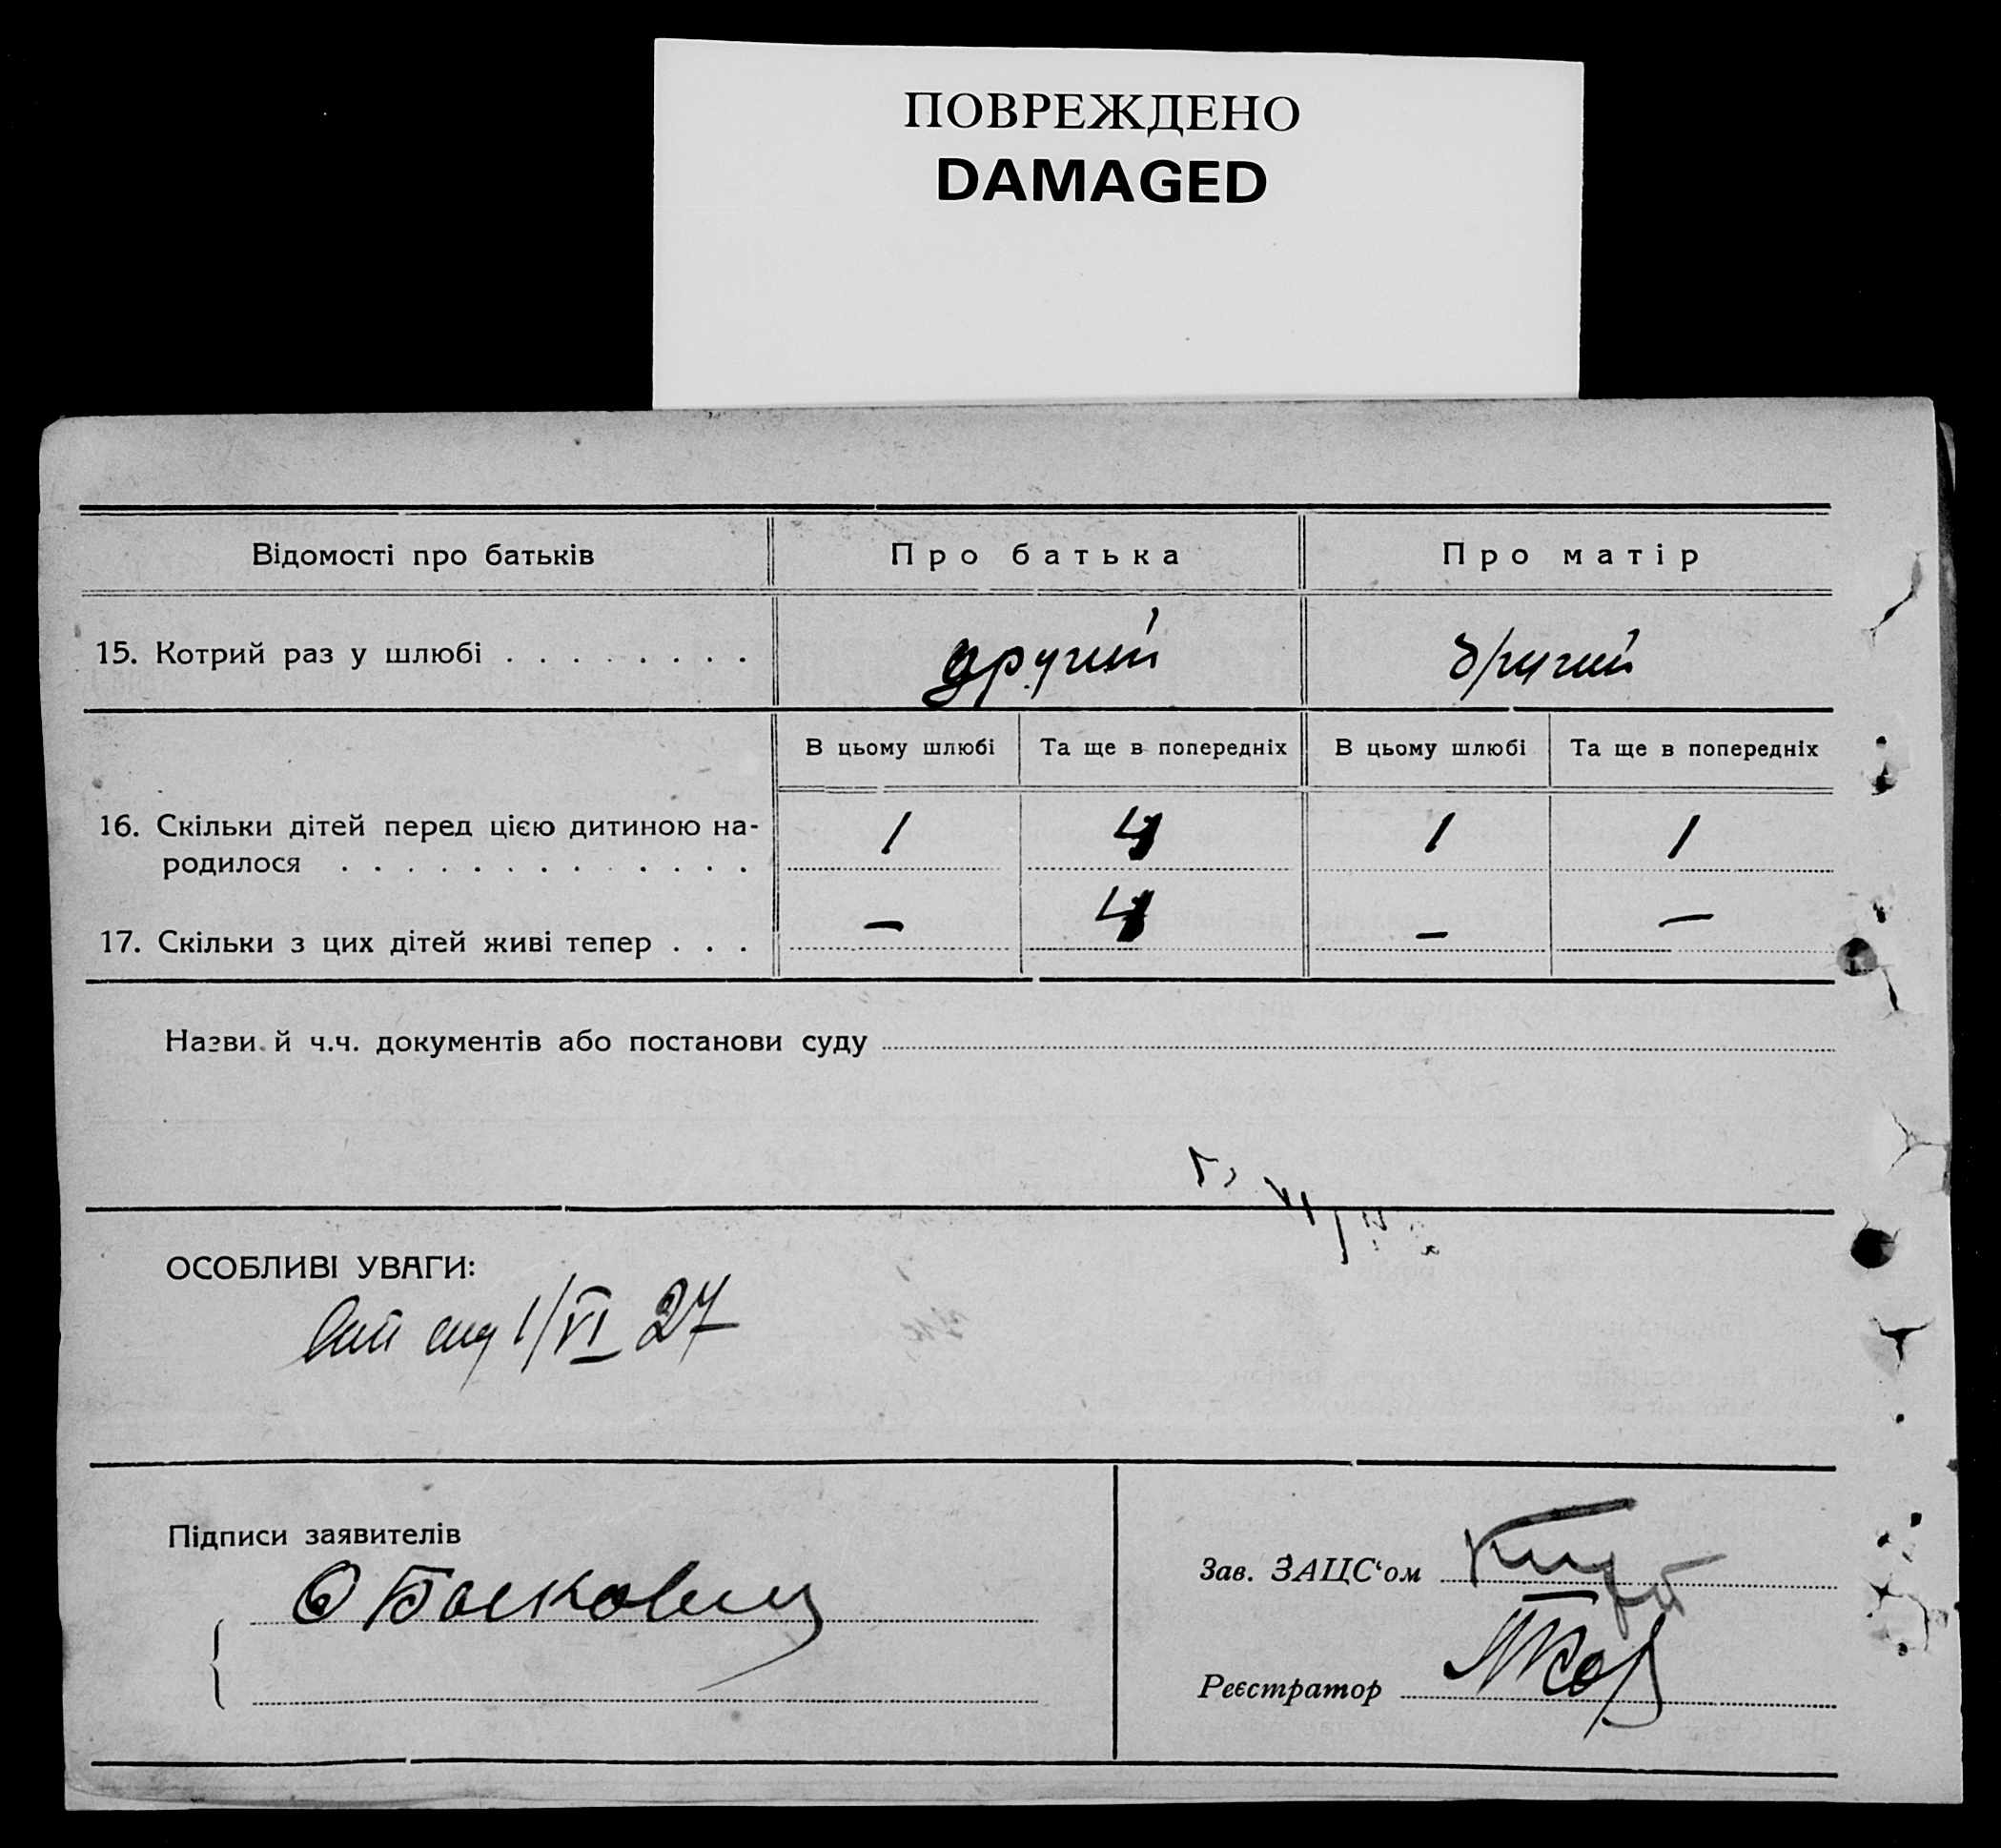 ПОВРЕЖДЕНО
DAMAGED
Відомості про батьків Про батька Про матір
15. Котрий раз у шлюбі . . . . . . . . другий другий
В цьому шлюбі Та ще в попередніх В цьому шлюбі Та ще в попередніх
16. Скільки дітей перед цією дитиною на-
родилося . . . . . . . . . . . . . 1 4 1 1
17. Скільки з цих дітей живі тепер . . . — 4 — —
Назви й ч.ч. документів або постанови суду
ОСОБЛИВІ УВАГИ:
1/VI 27
Підписи заявителів
Зав. ЗАЦС‘ом
Реєстратор